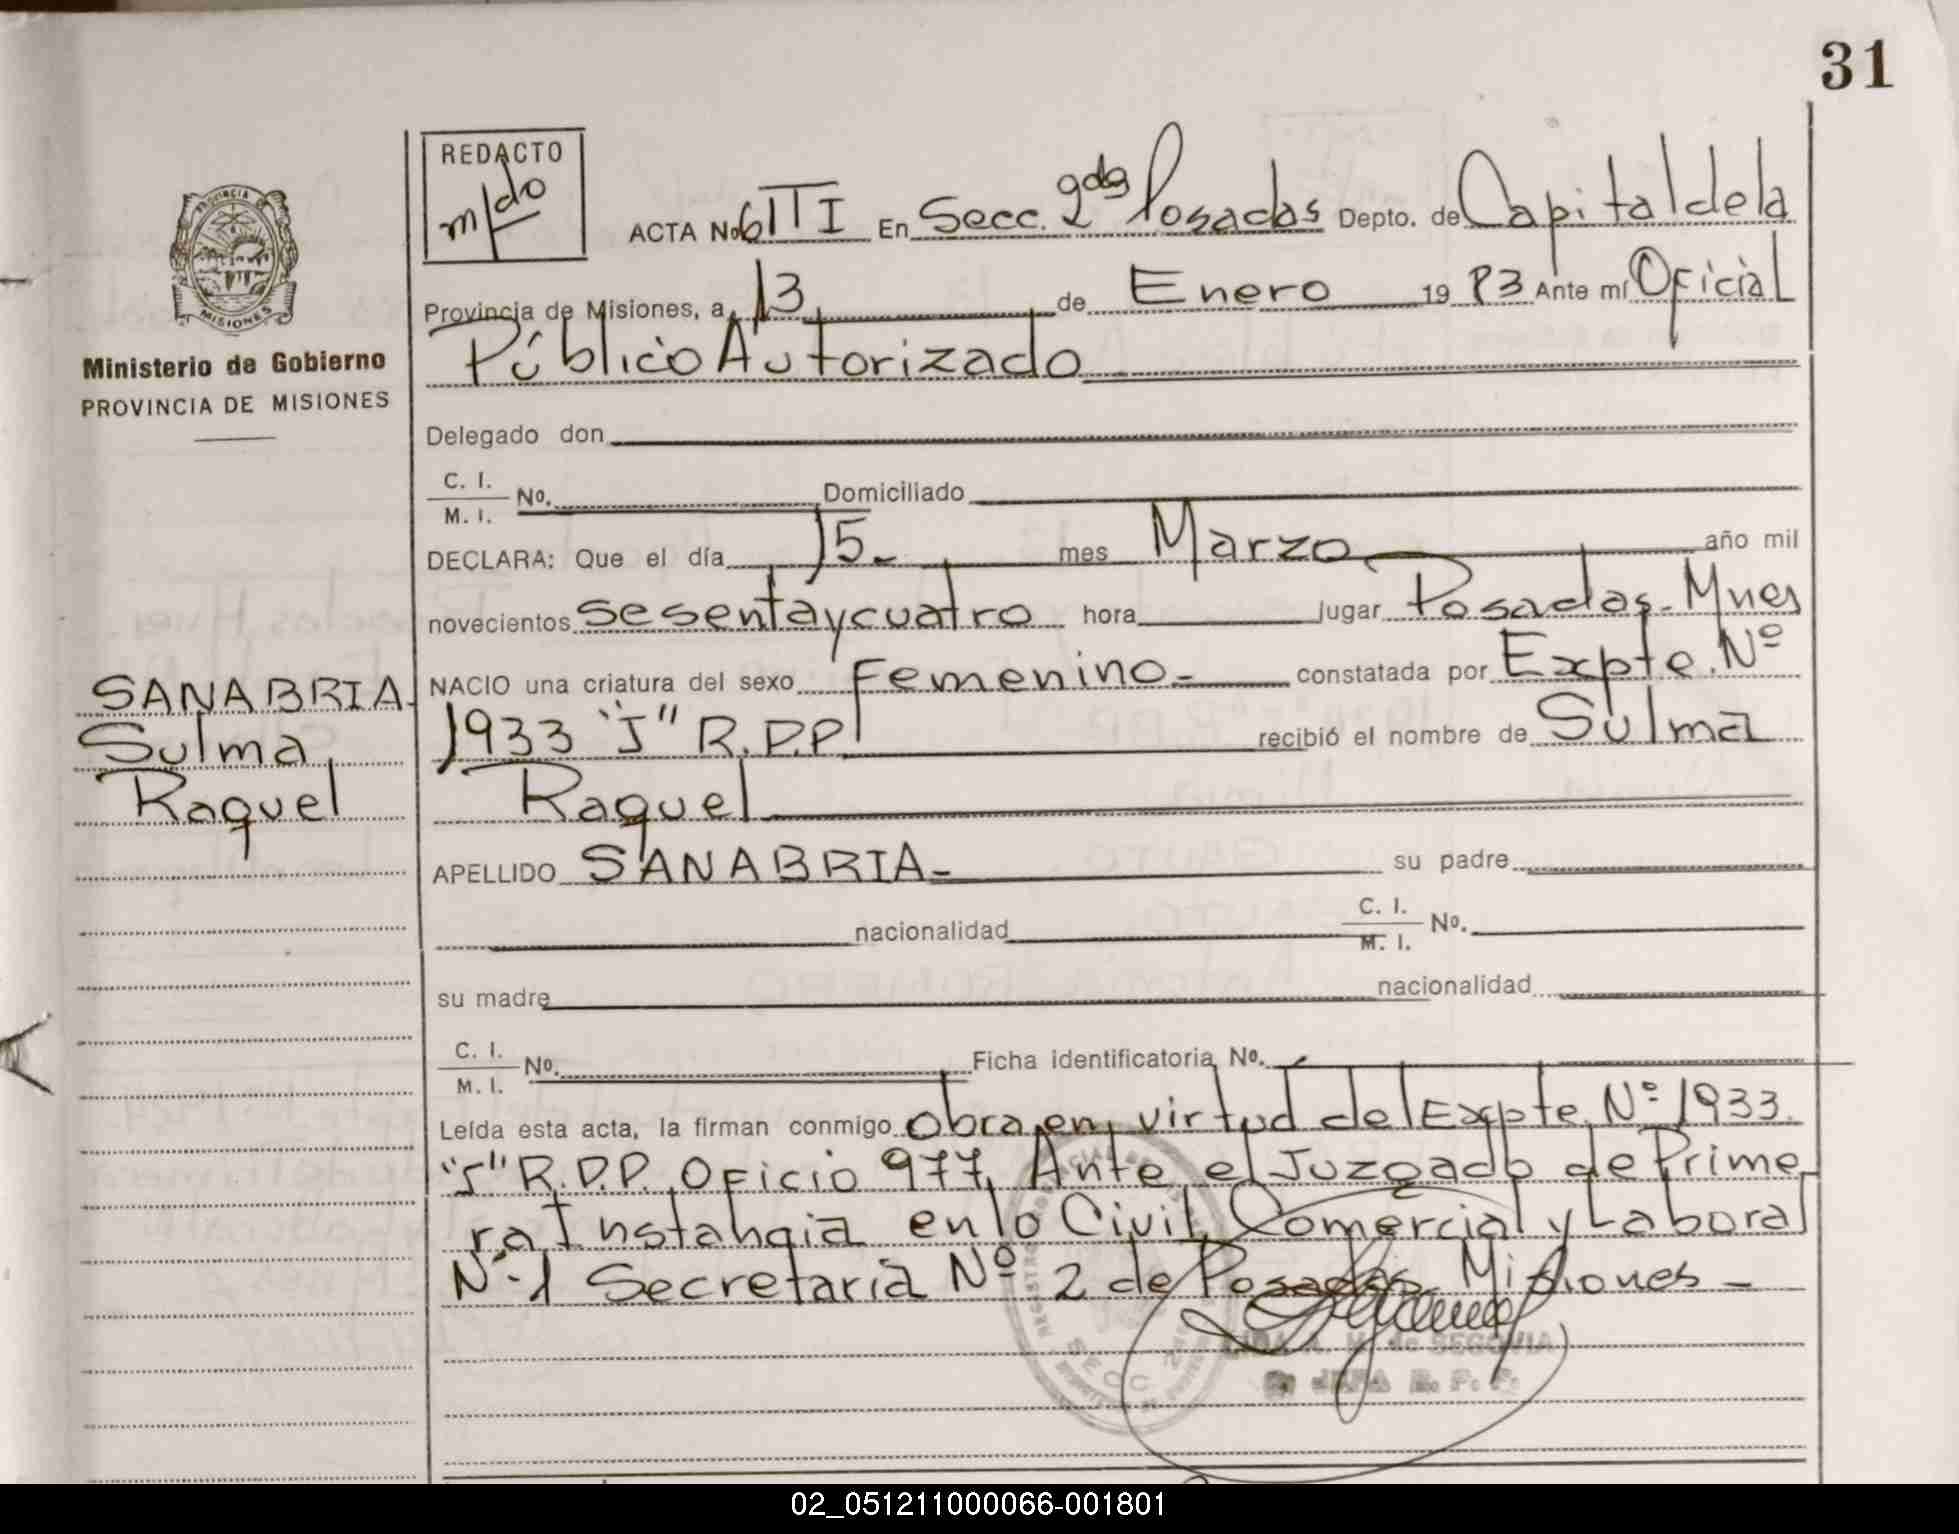 31
REDACTO
m/do
ACTA No 61 TI En Secc. 2da Posadas Depto. de Capital de la
Provincia de Misiones, a 13 de Enero 1983 Ante mí Oficial
Público Autorizado
PROVINCIA DE
MISIONES
Ministerio de Gobierno
PROVINCIA DE MISIONES
Delegado don
C. I.
M. I. No. Domiciliado
DECLARA: Que el día 15 mes Marzo año mil
novecientos sesentaycuatro hora lugar Posadas-Mnes
NACIO una criatura del sexo Femenino constatada por Expte. Nº
1933 "J" R.P.P recibió el nombre de Sulma
Raquel
SANABRIA
Sulma
Raquel
APELLIDO SANABRIA su padre
nacionalidad C. I.
M. I. No.
su madre nacionalidad
C. I.
M. I. No. Ficha identificatoria No.
Leída esta acta, la firman conmigo Obra en virtud del Expte. Nº 1933
"J" R.P.P. Oficio 977, Ante el Juzgado de Prime
ra Instancia en lo Civil, Comercial y Laboral
Nº 1 Secretaria Nº 2 de Posadas Misiones
SECC 2
LIDIA A. M. de SEGOVIA
JEFA R. P. P.
02_051211000066-001801